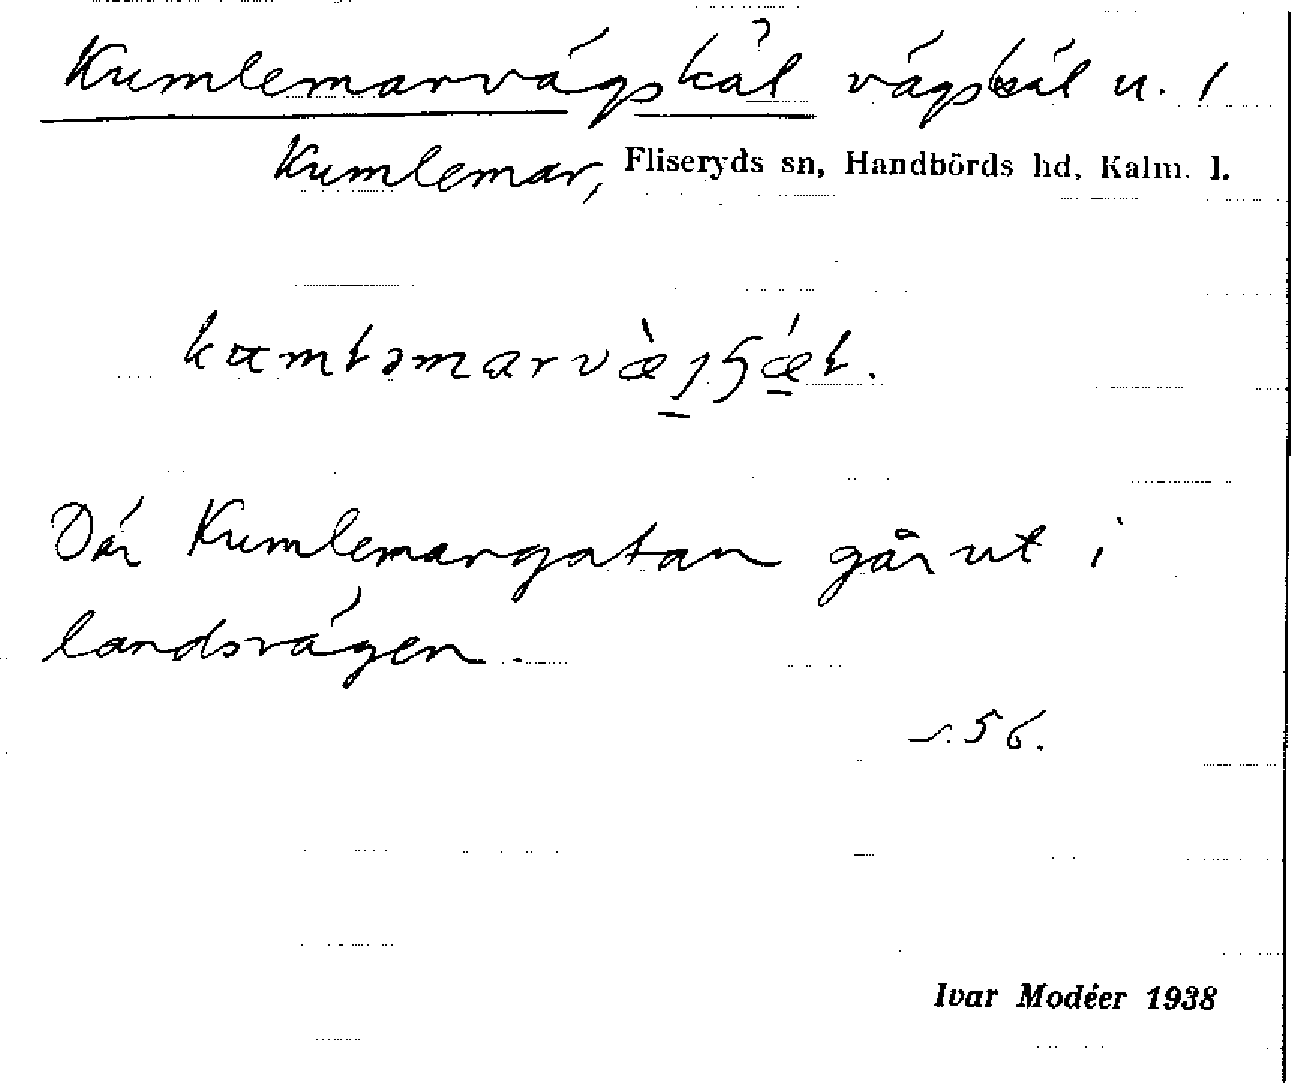 Kumlemarvägskäl vägskäl u. 1
Kumlemar, Fliseryds sn, Handbörds hd, Kalm. l.
Där Kumlemargatan går ut i
landsvägen.
s. 56.
Ivar Modéer 1938